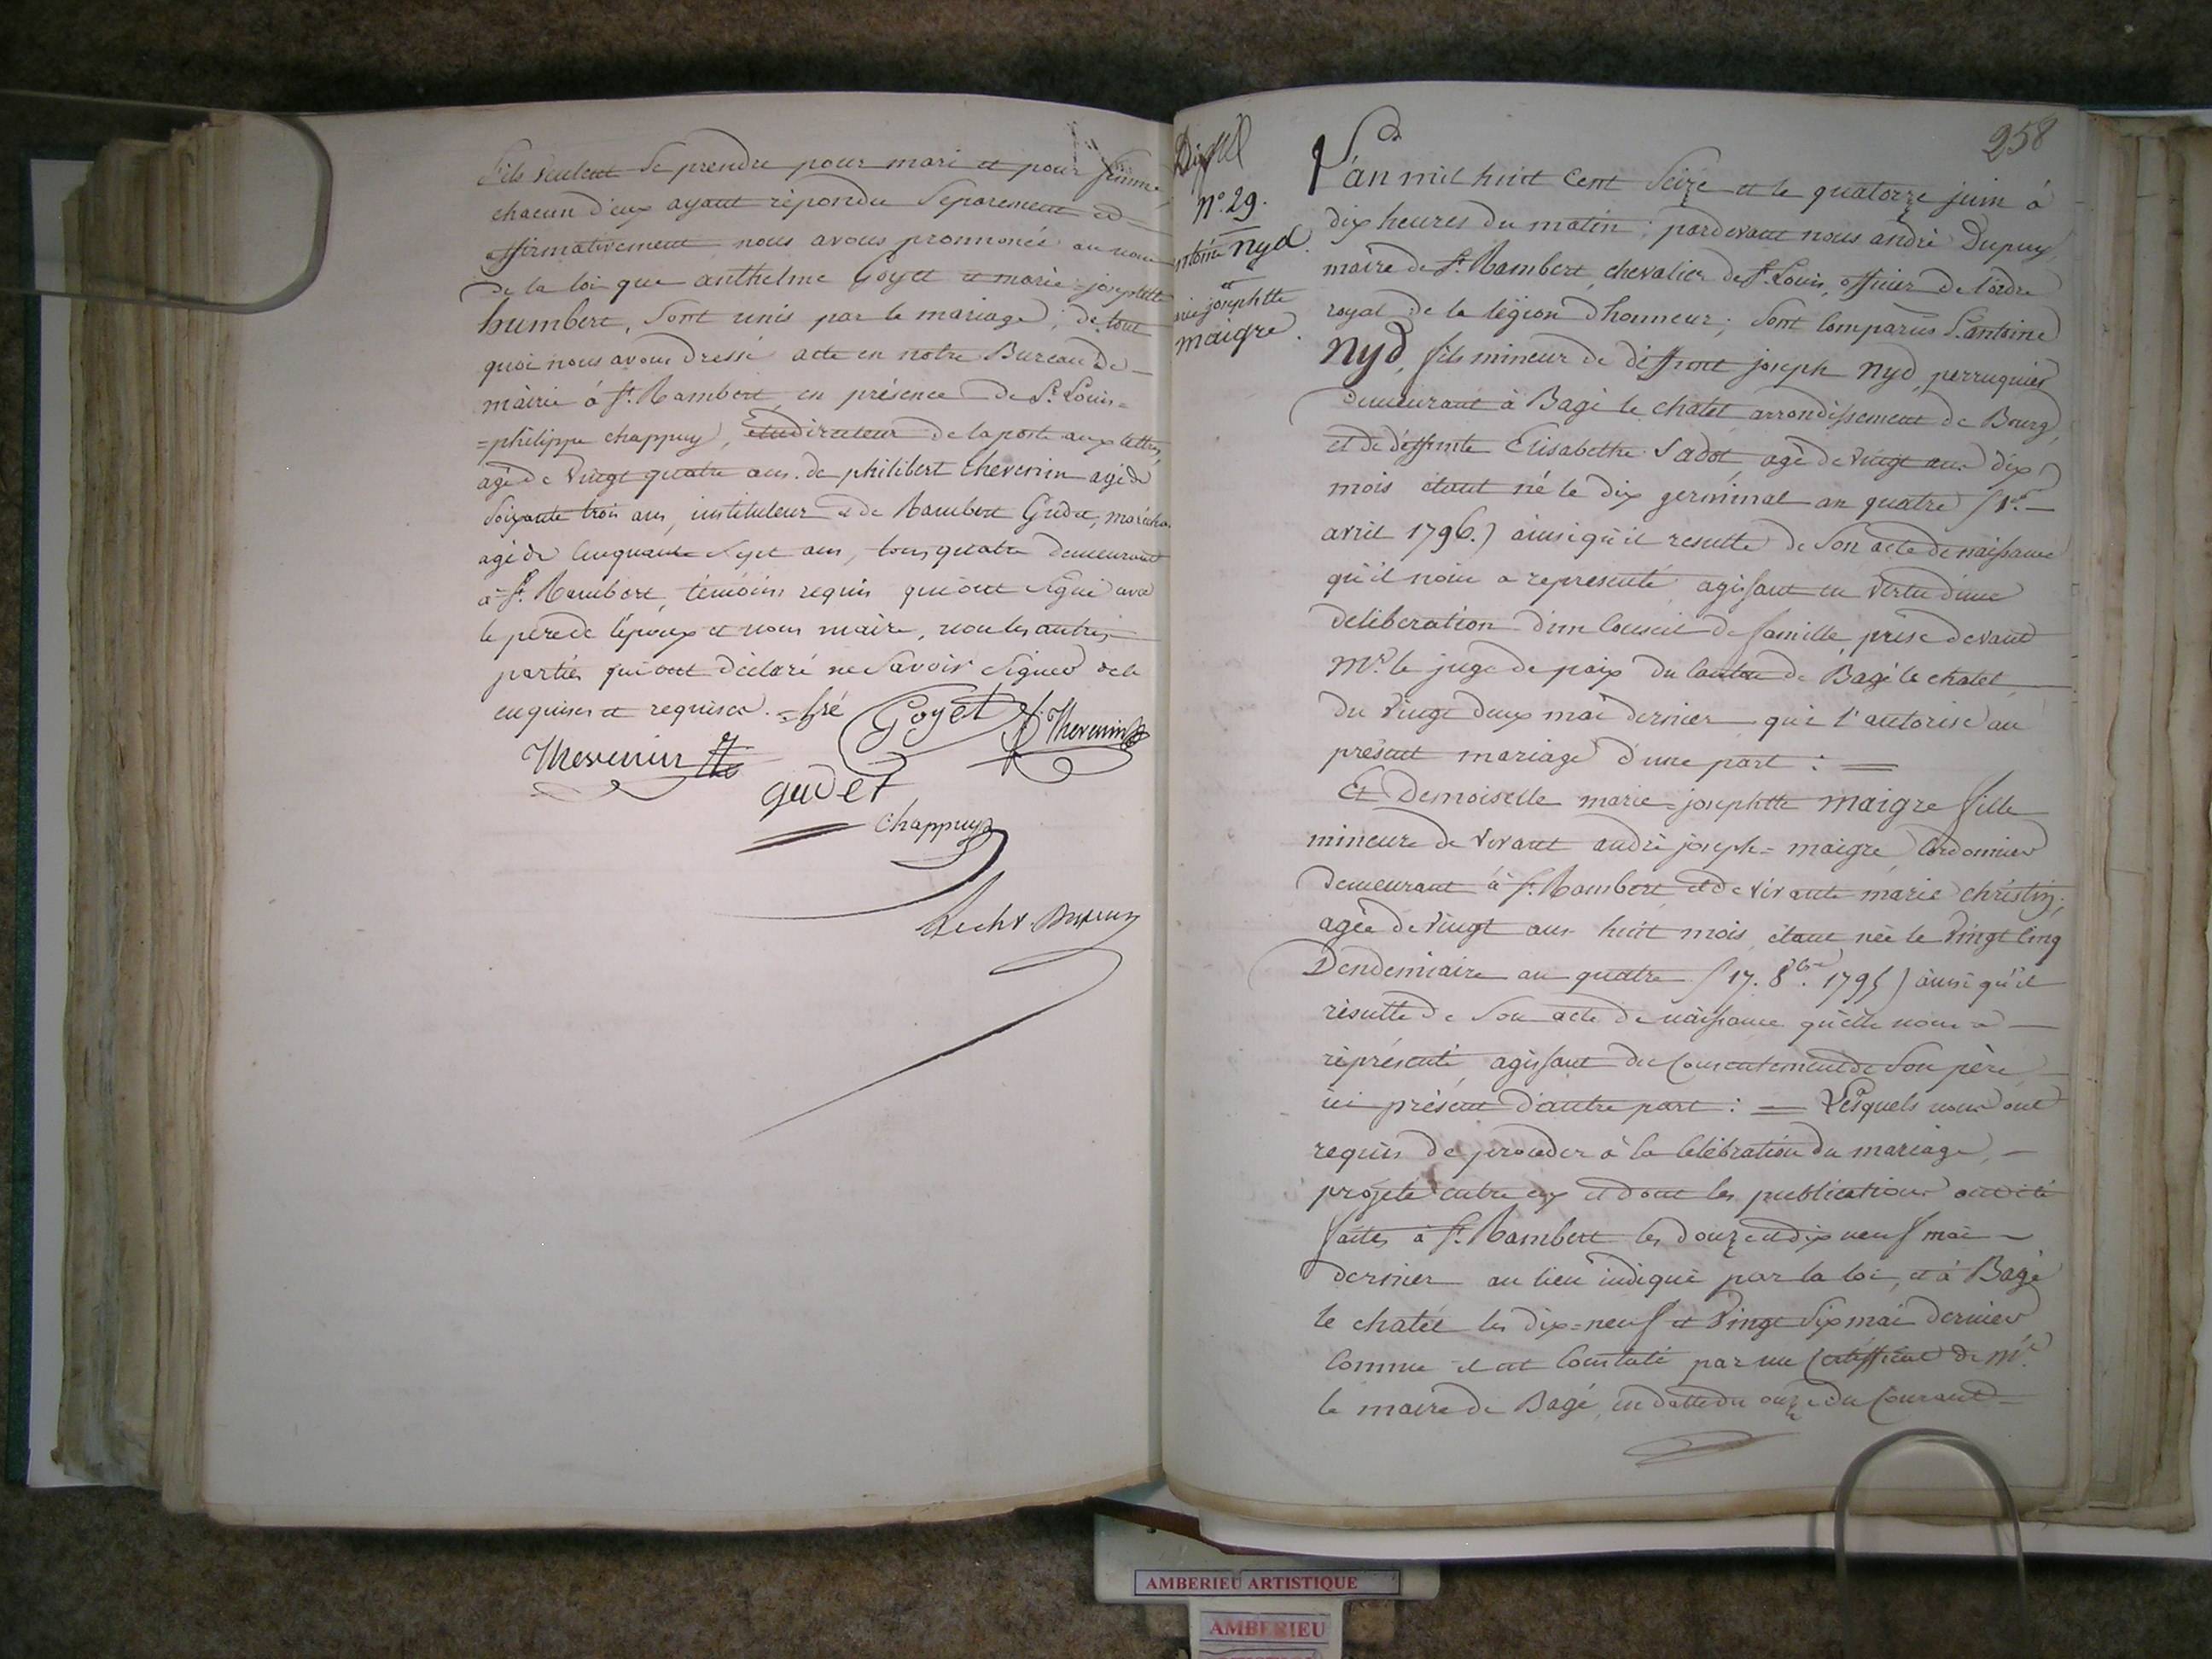 S'ils veulent se prendre pour mari et pour femme,
chacun d'eux ayant répondu separement et
affirmativement nous avons prononcé au nom
de la loi que anthelme Goyet et marie=josephtte
humbert, sont unis par le mariage, de tout
quoi nous avons dressé acte en notre Bureau de
mairie à St. Rambert, en présence de Sr. Louis=
=philippe chappuy, directeur de la poste aux lettres,
agé de vingt quatre ans. de philibert thevenin agé de
soixante trois ans, instituteur et de Rambert Gudet,
agé de cinquante sept ans, tous quatre demeurant
à St. Rambert, témoins requis qui ont signé avec
le pere de l'époux et nous maire, non les autres
parties qui ont déclaré ne savoir signer de ce
enquises et requises.
Goyet
Thevenin
Thevenin
gudet
Chappuy
Dupuy
258
n°. 29.
nyd.
et
josephtte
maigre.
L'an mil huit cent seize et le quatorze juin à
dix heures du matin; pardevant nous andré Dupuy,
maire de St. Rambert, chevalier de St. Louis, officier de l'ordre
royal de la légion d'honneur; sont comparus Sr. antoine
nyd, fils mineur de deffunt joseph nyd, perruquier
demeurant à Bagé le chatel, arrondissement de Bourg,
et de deffunte Elisabethe Sadot, agé de vingt ans dix
mois étant né le dix germinal an quatre (1er.
avril 1796.) ainsi qu'il resulte de son acte de naissance
qu'il nous a representé, agissant en vertu d'une
deliberation d'un conseil de famille, prise devant
Mr. le juge de paix du canton de Bagé le chatel
du vingt deux mai dernier qui l'autorise au
présent mariage d'une part: =
Et Demoiselle marie=josephtte maigre fille
mineure de vivant andré joseph=maigre, cordonnier
demeurant à St. Rambert, et de vivante marie christin,
agée de vingt ans huit mois, étant née le vingt cinq
Vendemiaire an quatre (17. 8bre. 1795) ainsi qu'il
résulte de son acte de naissance qu'elle nous a
réprésenté, agissant du consentement de son père,
ici présent d'autre part: = Lesquels nous ont
requis de proceder à la célébration du mariage,
projeté entre eux et dont les publications ont été
faites à St. Rambert les douze et dix neuf mai
dernier au lieu indiqué par la loi, et à Bagé
le chatel les dix=neuf et vingt six mai dernier
comme il est constaté par un certifficat de Mr.
le maire de Bagé, en datte du onze du courant
AMBERIEU ARTISTIQUE
AMBERIEU